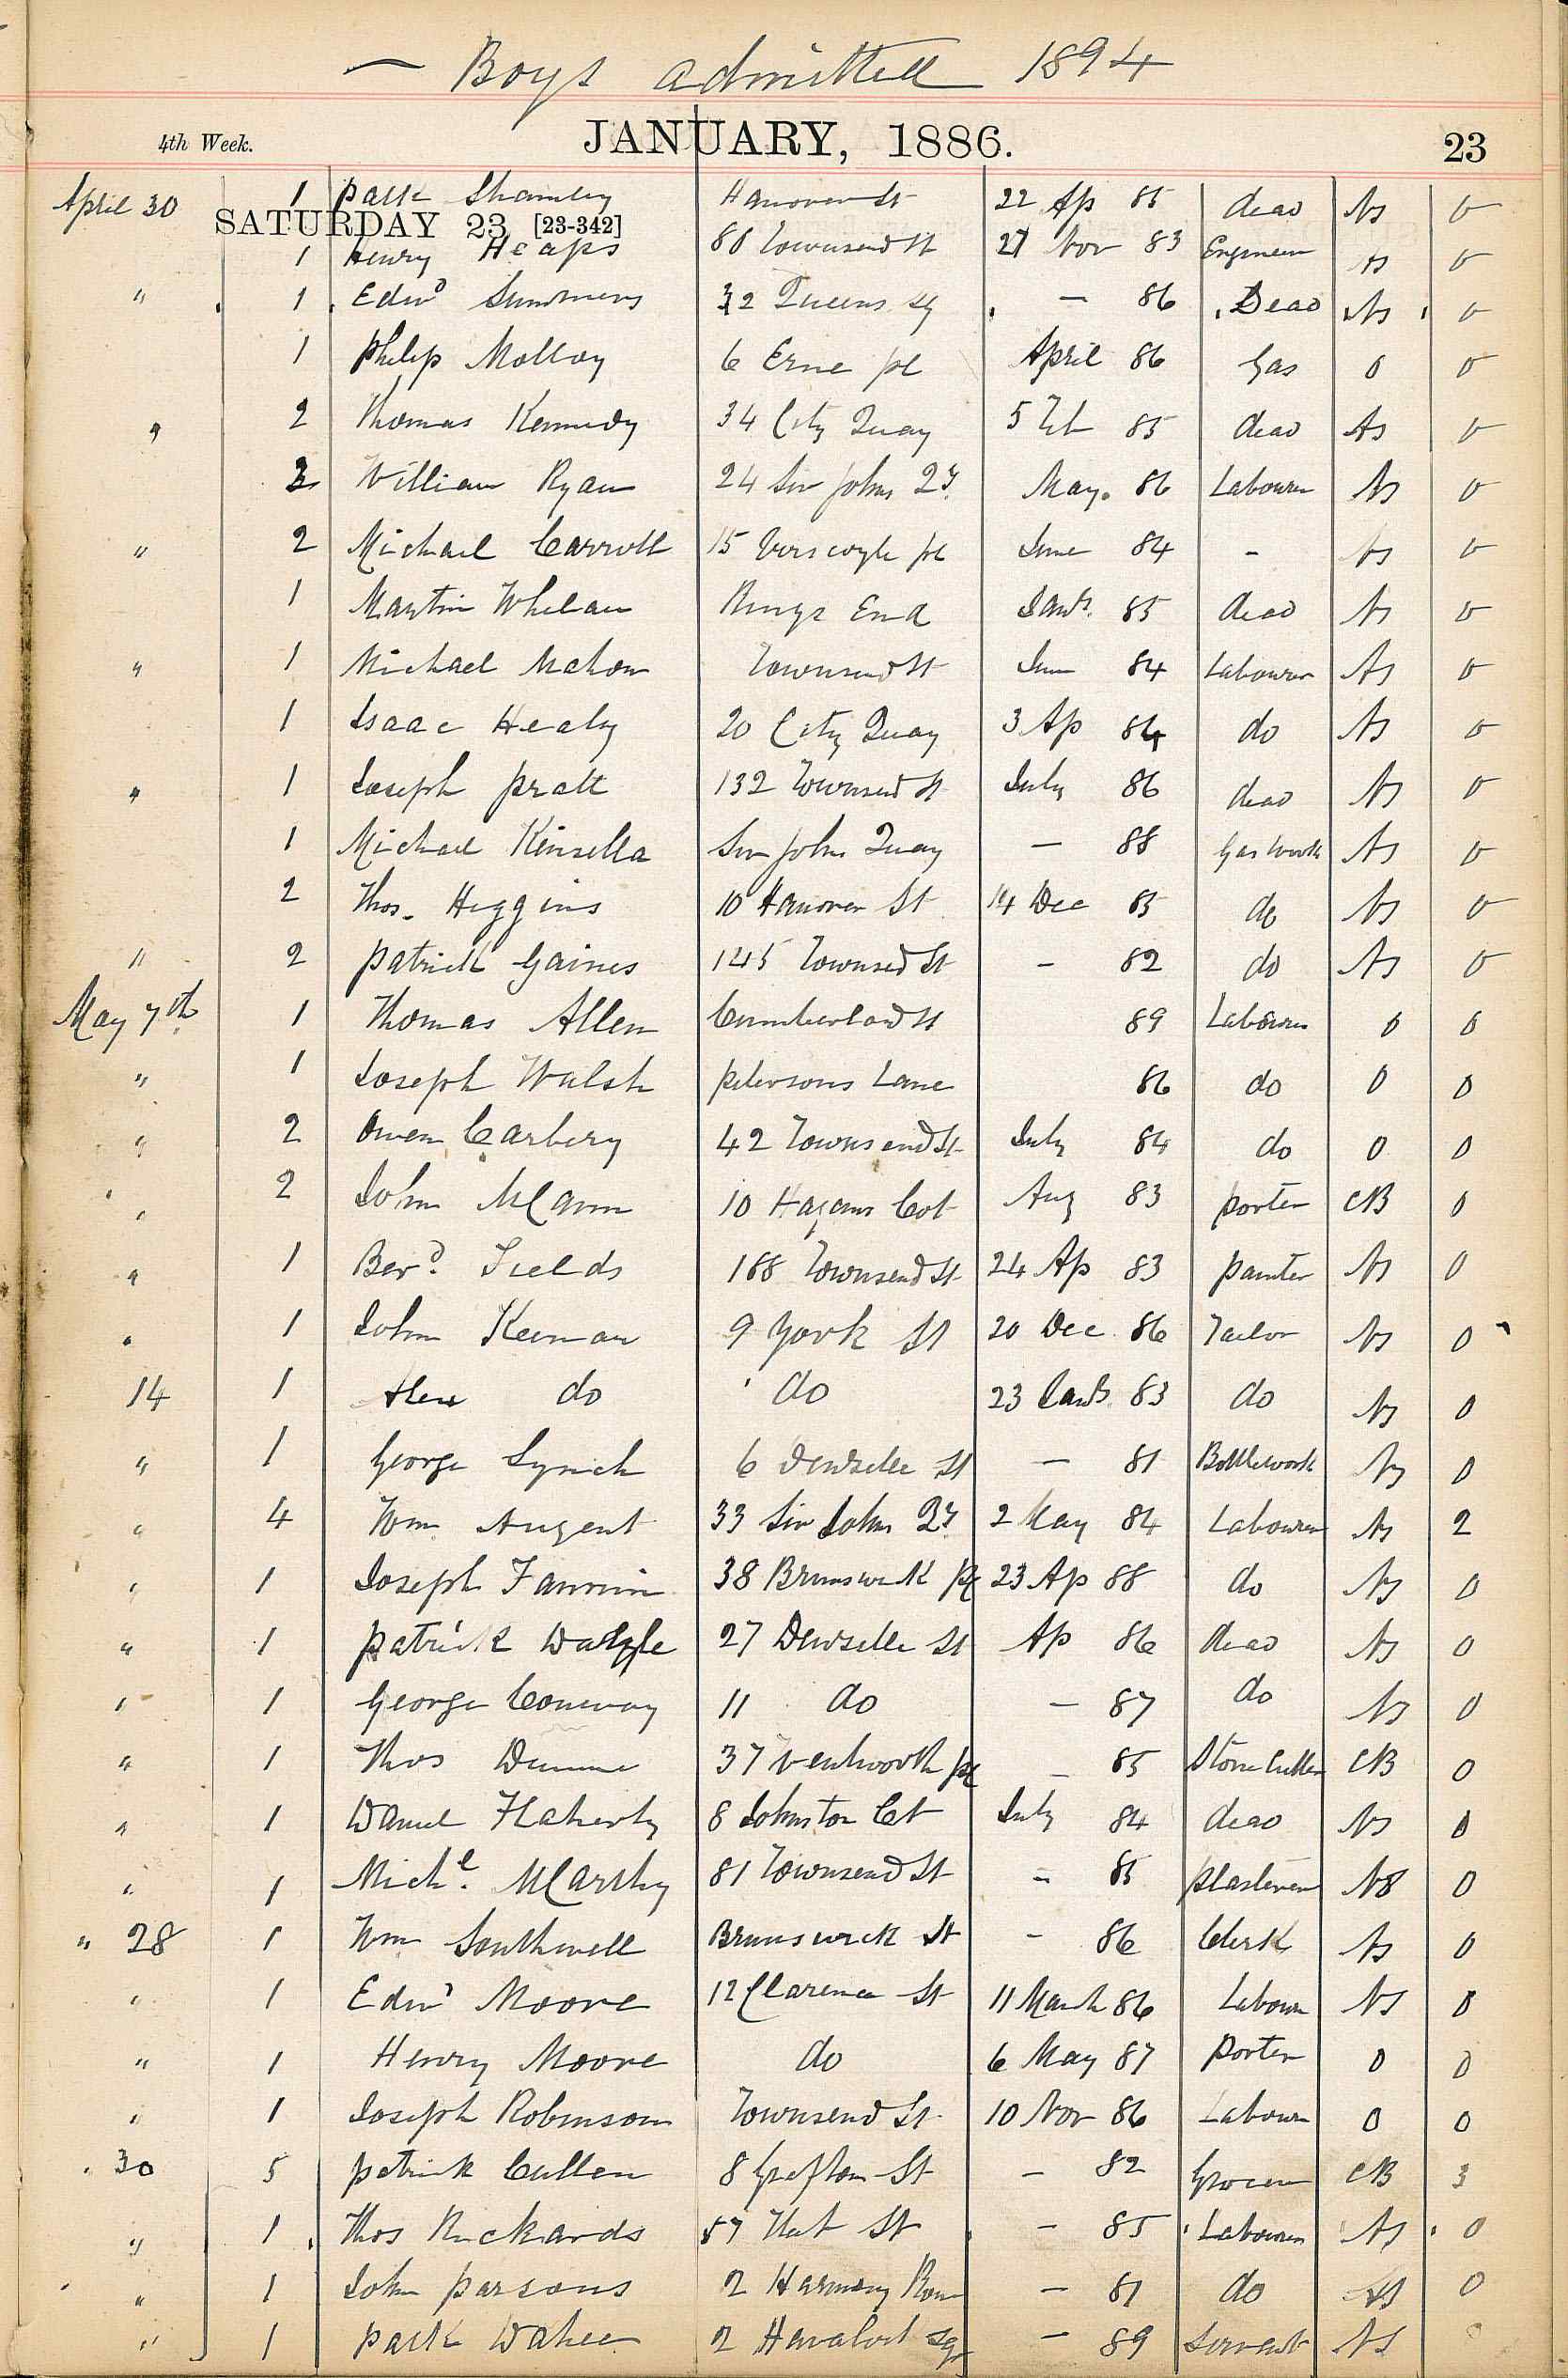 — Boys admitted 1894
4th Week. JANUARY, 1886. 23
April 30 1 Patk Hanover St 22 Ap 85 dead Ns 0
SATURDAY 23 [23-342]
1 Henry Heaps 88 Townsend St 27 Nov 83 Engineer Ns 0
" 1 Edwd Summers 32 Queens Sq — 86 Dead Ns 0
1 Philip Molloy 6 Erne pl April 86 Gas 0 0
" 2 Thomas Kennedy 34 City Quay 5 Feb 85 dead Ns 0
2 William Ryan 24 Sir Johns Qy. May. 86 Labourer Ns 0
" 2 Michael Carroll 15 Verscoyle pl June 84 - Ns 0
1 Martin Whelan Rings End Jany. 85 dead Ns 0
" 1 Michael Mahon Townsend St June 84 Labourer Ns 0
1 Isaac Healy 20 City Quay 3 Ap 84 do Ns 0
" 1 Joseph Pratt 132 Townsend St July 86 dead Ns 0
1 Michael Kinsella Sir John Quay — 88 Gas Work Ns 0
2 Thos. Higgins 10 Hanover St 14 Dec 85 do Ns 0
" 2 Patrick Gaines 145 Townsed St - 82 do Ns 0
May 7th 1 Thomas Allen Cumberland St 89 Labourer 0 0
" 1 Joseph Walsh Petersons Lane 86 do 0 0
" 2 Owen Carbery 42 Townsend St July 84 do 0 0
" 2 John McCann 10 Hagans Cot Aug 83 porter CB 0
" 1 Berd. Fields 188 Townsend St 24 Ap 83 painter Ns 0
" 1 John Keenan 9 York St 20 Dec 86 Tailor Ns 0
14 1 Alex do do 23 Jany. 83 do Ns 0
" 1 George Lynch 6 Dowselle St — 81 Bottlework Ns 0
" 4 Wm Nugent 33 Sir Johns Qy 2 May 84 Labourer Ns 2
" 1 Joseph Fannin 38 Brunswick pl 23 Ap 88 do Ns 0
" 1 Patrick 27 Dowselle St Ap 86 dead Ns 0
" 1 George Conway 11 do — 87 do Ns 0
" 1 Thos Dunne 37 Wentworth pl — 85 Stone Cutter CB 0
" 1 Daniel Flaherty 8 Johnston Ct July 84 dead Ns 0
" 1 Michl. McCarthy 81 Townsend St - 85 plasterer NS 0
" 28 1 Wm Southwell Brunswick St - 86 Clerk Ns 0
" 1 Edwd Moore 12 Clarence St 11 March 86 Labourer Ns 0
" 1 Henry Moore do 6 May 87 Porter 0 0
" 1 Joseph Robinson Townsend St 10 Nov 86 Labourer 0 0
30 5 Patrick Cullen 8 Grafton St - 82 Grocer CB 3
" 1 Thos Rickards 57 St - 85 Labourer Ns 0
" 1 John Parsons 2 Harmony Row — 81 do NS 0
" 1 Patk 2 Havelock Sqr — 89 Servant NS 0